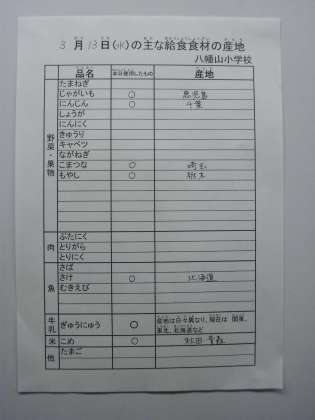 3月13日(水)の主な給食食材の産地
八幡山小学校
品名 本日使用したもの 産地
野菜・果物
たまねぎ
じゃがいも ○ 鹿児島
にんじん ○ 千葉
しょうが
にんにく
きゅうり
キャベツ
ながねぎ
こまつな ○ 埼玉
もやし ○ 栃木
肉
ぶたにく
とりがら
とりにく
魚
さば
さけ ○ 北海道
むきえび
牛乳 ぎゅうにゅう ○ 産地は日々異なり、現在は 関東、
東北、北海道など
米 こめ ○ 秋田 青森
他 たまご